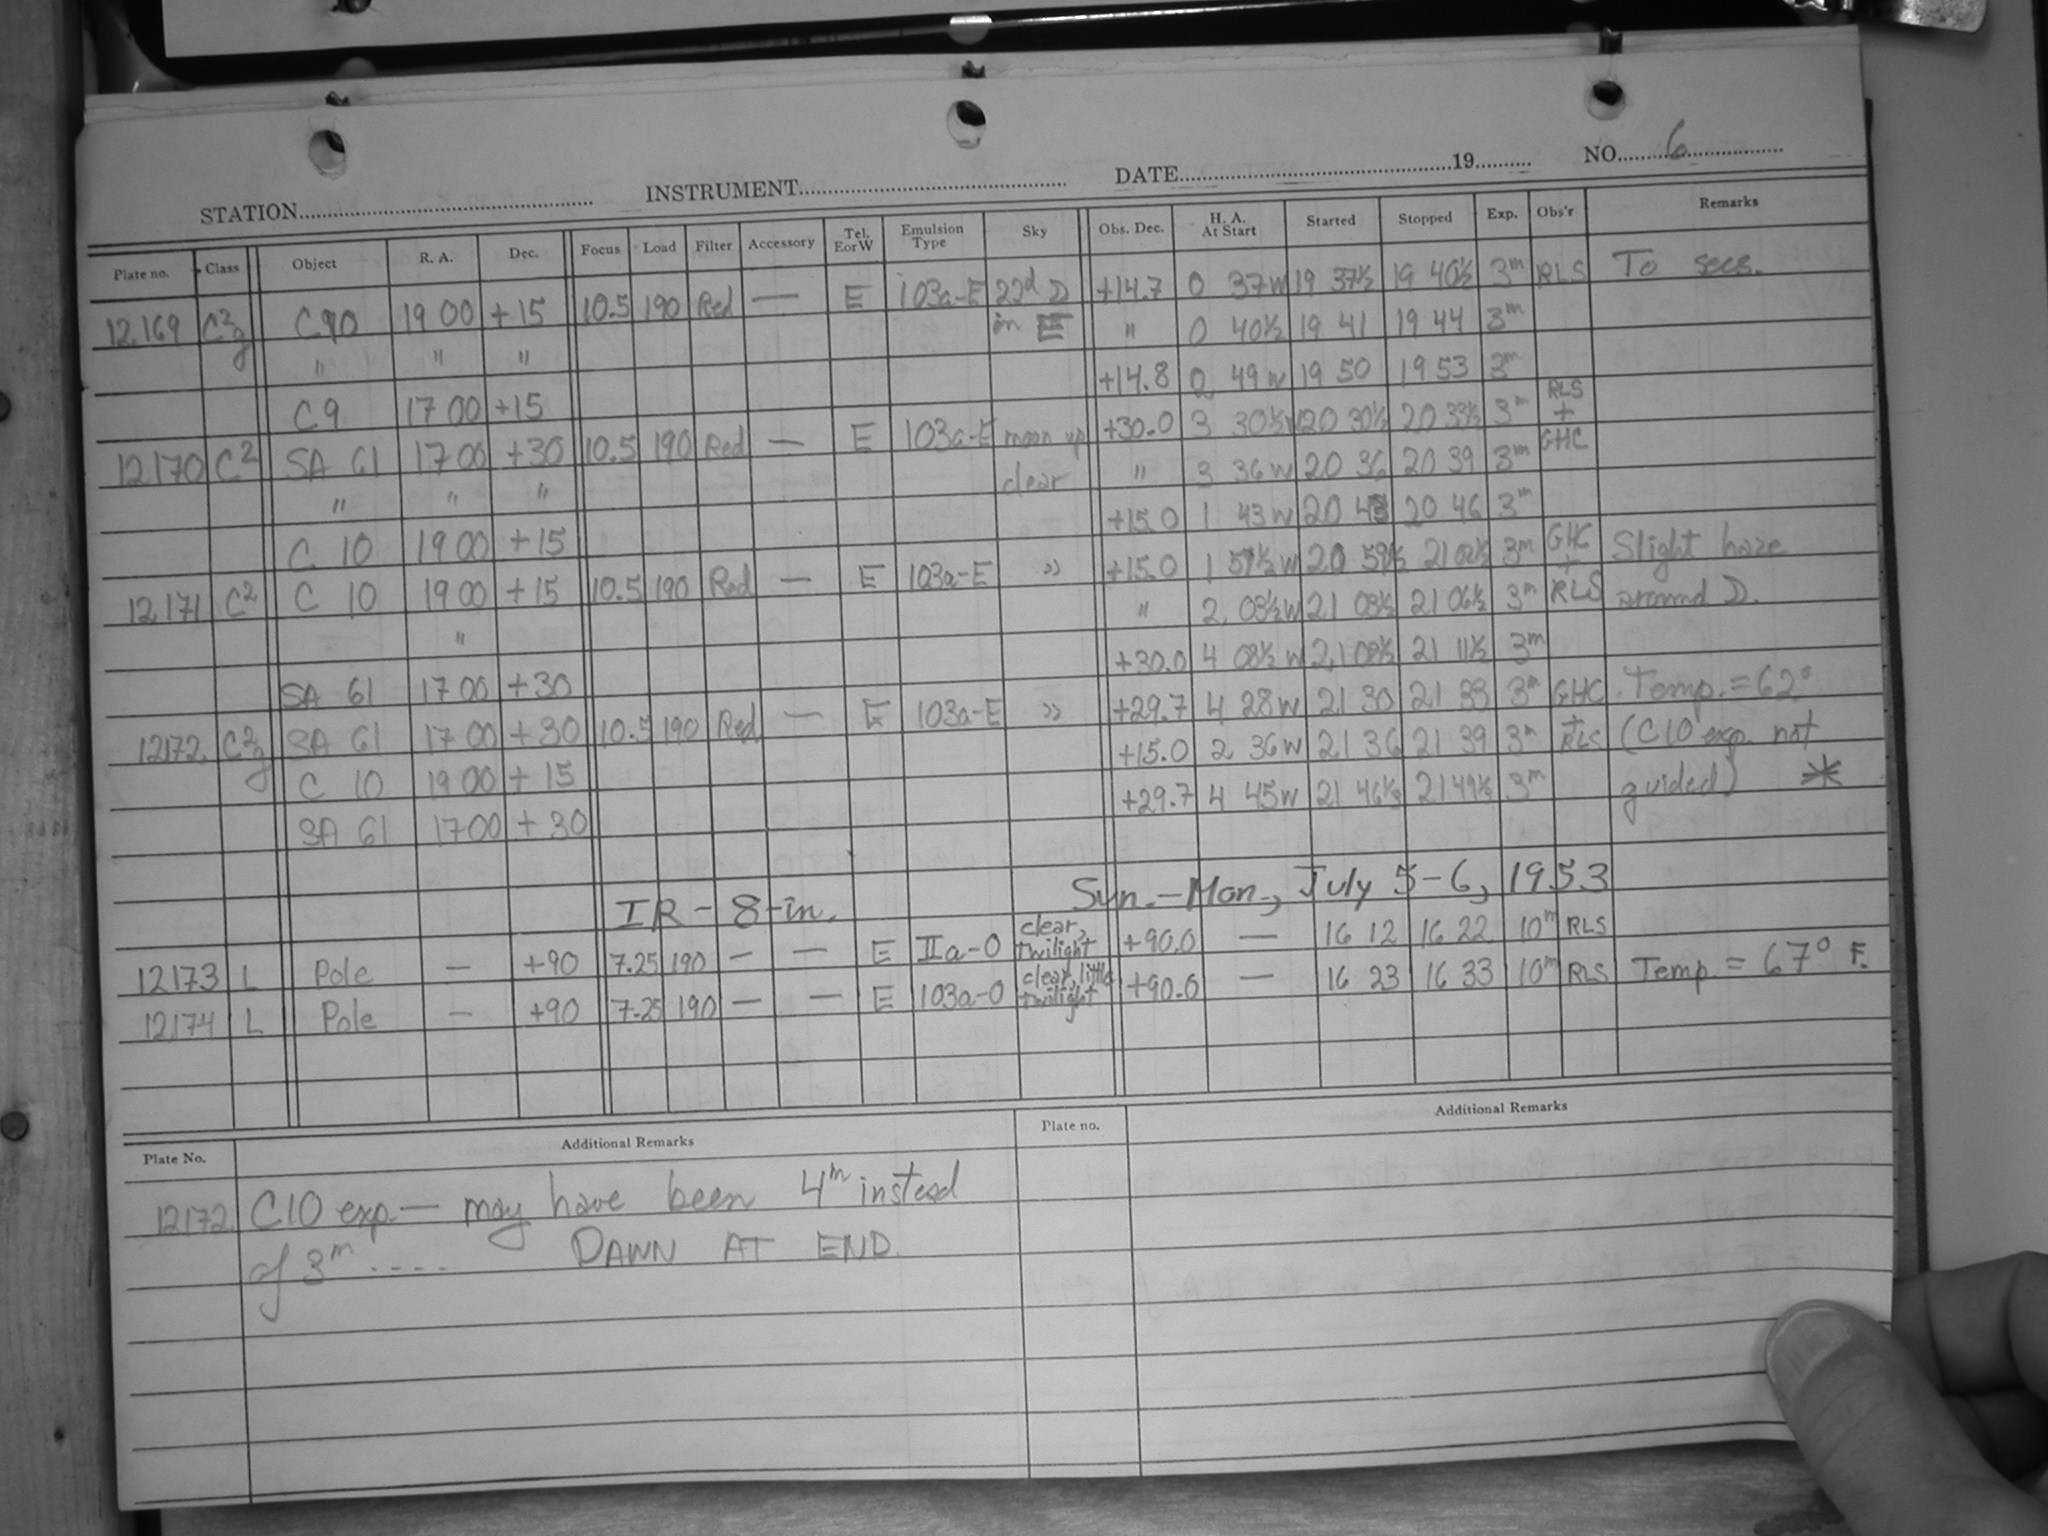 STATION INSTRUMENT DATE 19 NO. 6
Plate no. Class Object R. A. Dec. Focus Load Filter Accessory Tel. E or W Emulsion Type Sky Obs. Dec. H. A. At Start Started Stopped Exp. Obs'r Remarks
12,169 C²g C90 19 00 +15 10.5 190 Red — E 103a-E 22d D +14.7 0 37W 19 37½ 19 40½ 3m RLS To secs.
" " " in E " 0 40½ 19 41 19 44 3m
C9 17 00 +15 +14.8 0 49 W 19 50 19 53 3m
12,170 C² SA 61 17 00 +30 10.5 190 Red — E 103a-E moon up +30.0 3 30½W 20 30½ 20 33½ 3m RLS +
" " " clear " 3 36 W 20 36 20 39 3m GHC
C 10 19 00 +15 +15.0 1 43 W 20 43 20 46 3m
12,171 C² C 10 19 00 +15 10.5 190 Red — E 103a-E " +15.0 1 59½ W 20 59½ 21 02½ 3m GHC + Slight haze
" " 2 03½W 21 03½ 21 06½ 3m RLS around D.
SA 61 17 00 +30 +30.0 4 08½ W 21 08½ 21 11½ 3m
12172 C²g SA 61 17 00 +30 10.5 190 Red — E 103a-E " +29.7 4 28 W 21 30 21 33 3m GHC Temp. = 62°
C 10 19 00 +15 +15.0 2 36 W 21 36 21 39 3m + RLS (C10 exp. not
SA 61 17 00 +30 +29.7 4 45W 21 46½ 21 49½ 3m guided) *
IR - 8-in. Sun.-Mon., July 5-6, 1953
12173 L Pole — +90 7.25 190 — — E IIa-O clear, twilight +90.0 — 16 12 16 22 10m RLS
12174 L Pole — +90 7.25 190 — — E 103a-O clear, little twilight +90.0 — 16 23 16 33 10m RLS Temp = 67° F.
Plate No. Additional Remarks Plate no. Additional Remarks
12172 C10 exp.— may have been 4m instead
of 3m .... DAWN AT END.